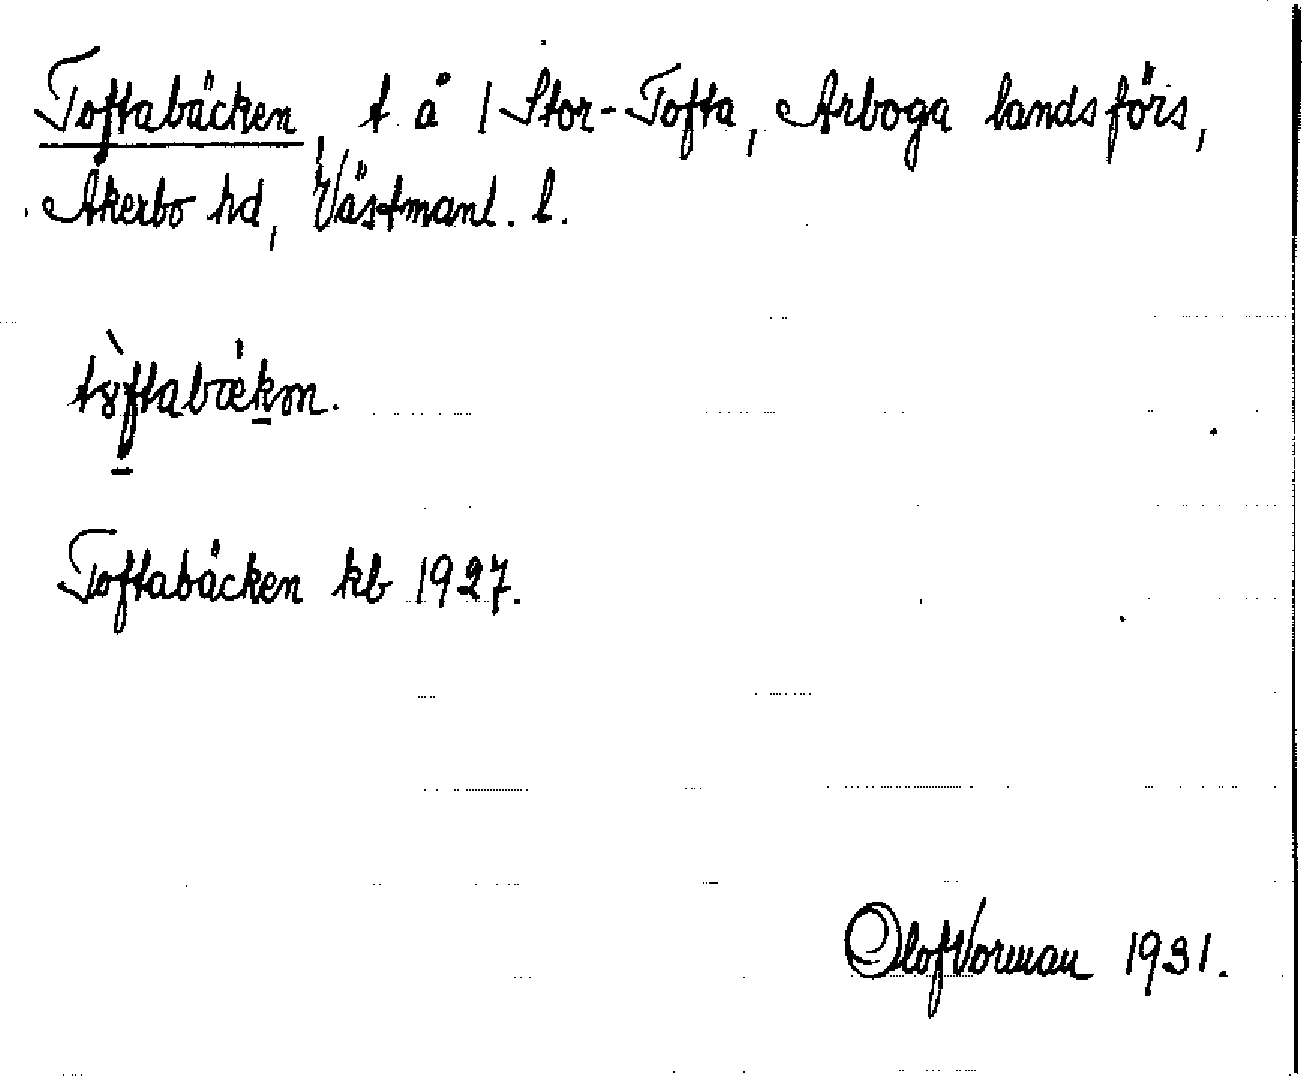 Toftabäcken, t. å 1 Stor-Tofta, Arboga landsförs,
Åkerbo hd, Västmanl. l.
Toftabäcken kb 1927.
Olof Vorman 1931.